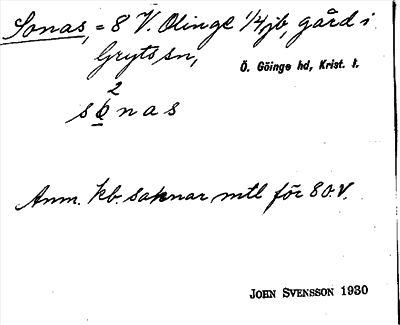 Sonas, = 8 V. Olinge 1/4 jb, gård i
Gryts sn,
Ö. Göinge hd, Krist. l.
2
sònas
Anm. kb. saknar mtl för 8 o. V.
JOHN SVENSSON 1930